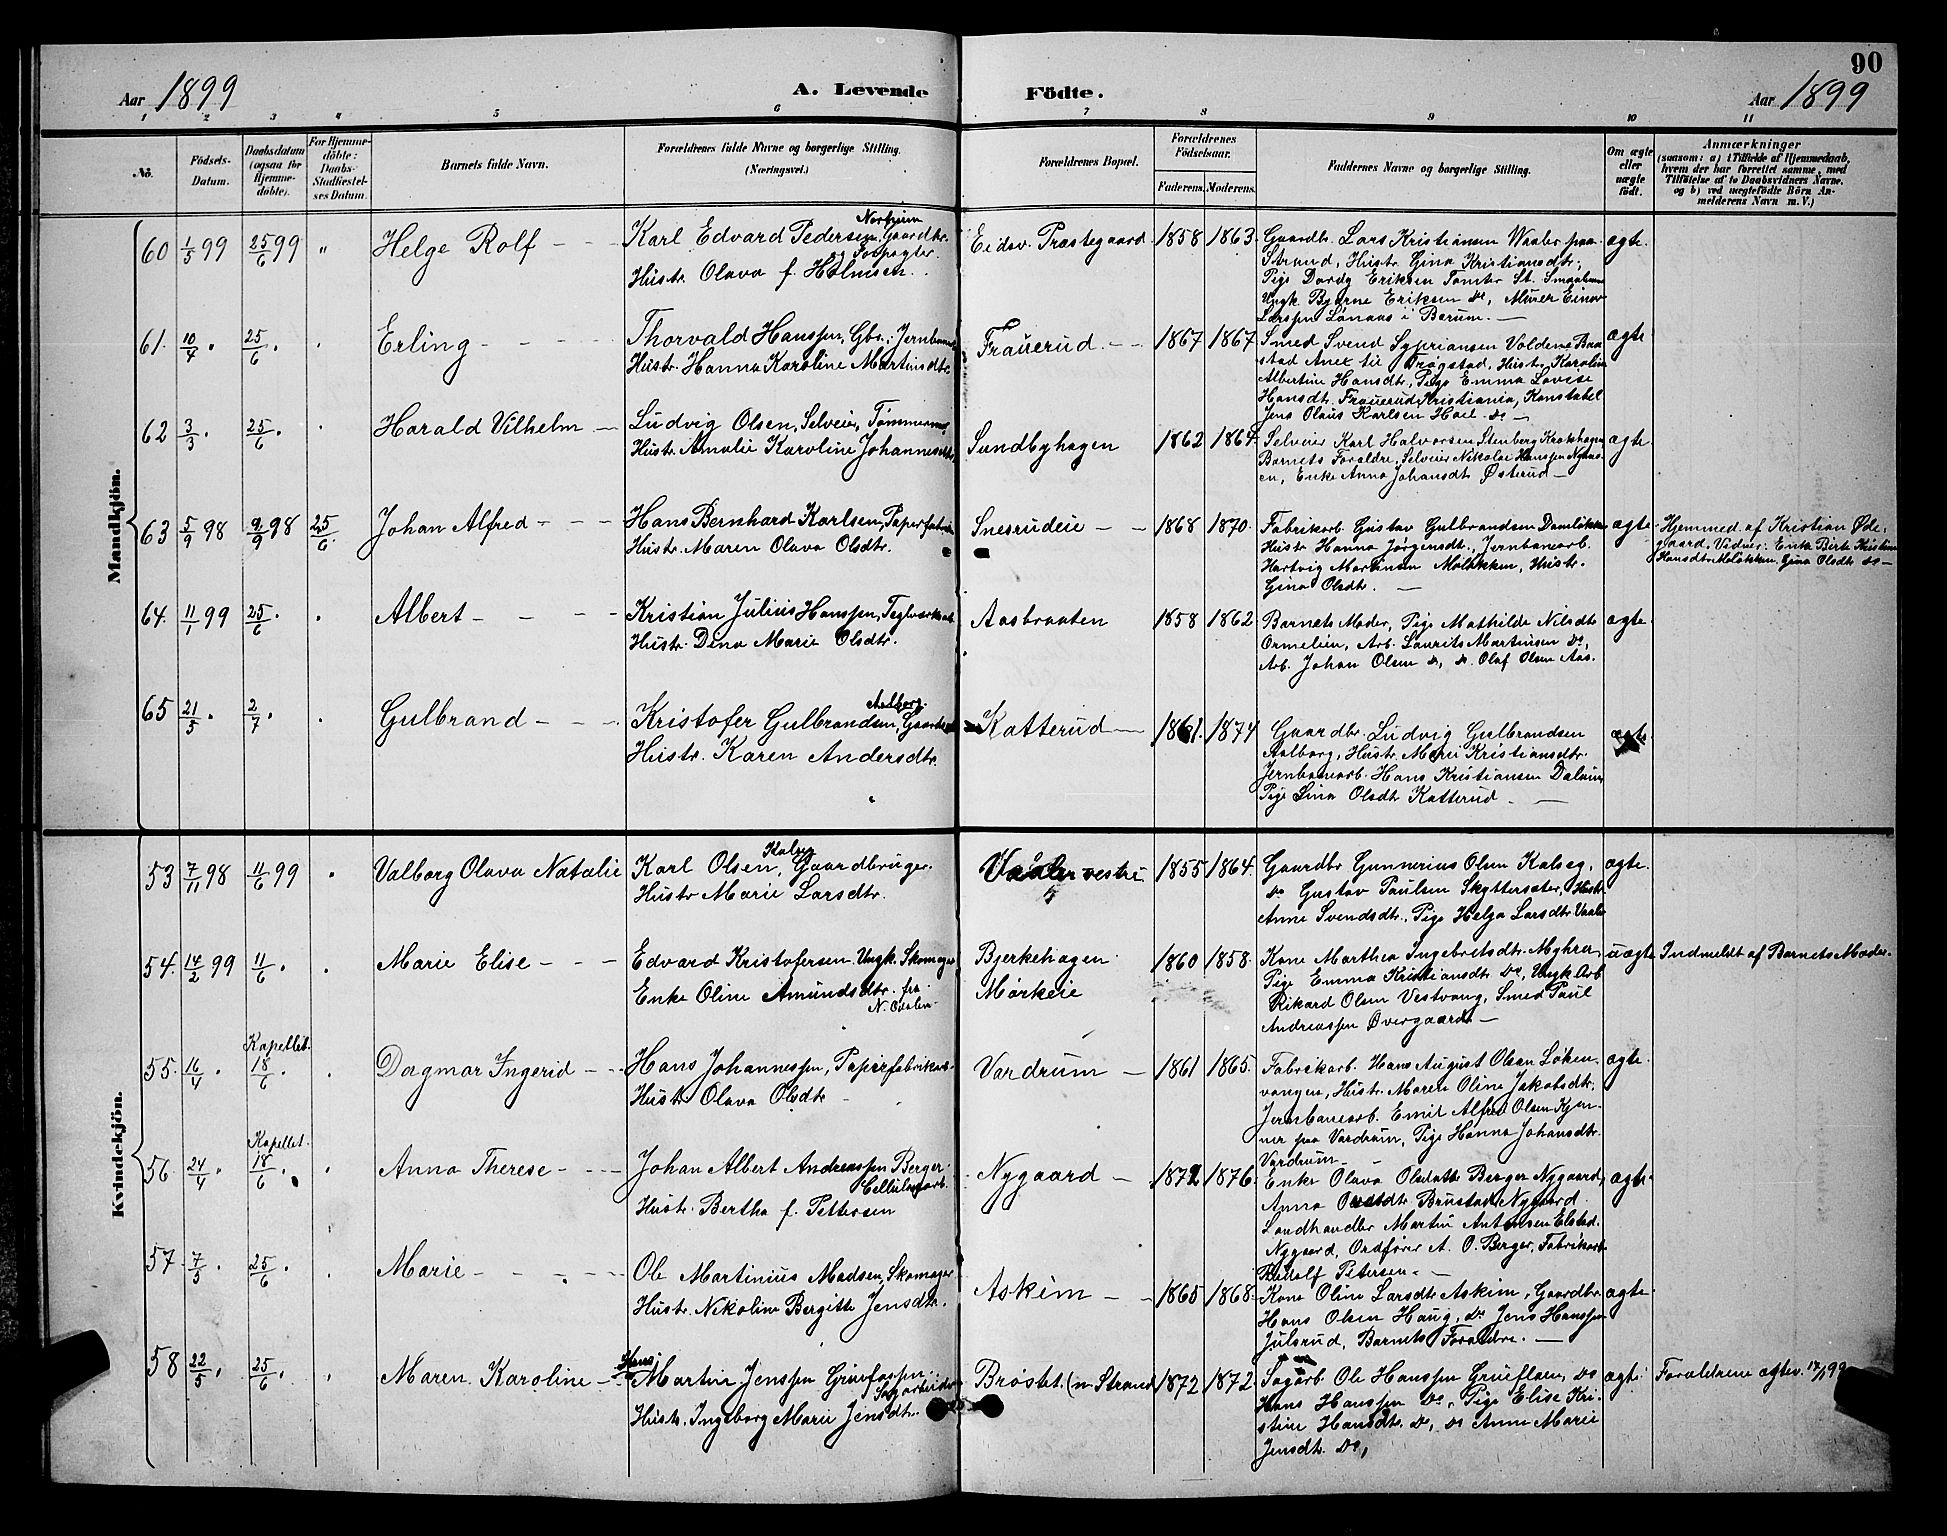 90
Aar 1899
A. Levende Födte.
Aar 1899
1 2 3 4 5 6 7 8 9 10 11
No.
Födsels-
Datum.
Daabsdatum
(ogsaa for
Hjemme-
döbte).
For Hjemme-
döbte:
Daabs-
Stadfæstel-
ses Datum.
Barnets fulde Navn.
Forældrenes fulde Navne og borgerlige Stilling.
(Næringsvei.)
Forældrenes Bopæl.
Forældrenes
Födselsaar.
Faderens. Moderens.
Faddernes Navne og borgerlige Stilling.
Om ægte
eller
uægte
födt.
Anmærkninger
(saasom: a) i Tilfælde af Hjemmedaab,
hvem der har forrettet samme, med
Tilföielse af to Daabsvidners Navne,
og b) ved uægtefödte Börn An-
melderens Navn m. V.)
Mandkjön.
60 1/5 99 25/6 99 "
Helge Rolf
Karl Edvard Pedersen, Gaardbr.
og Forpagter
Hustr. Olava f. Holmsen.
Eidsv. Præstegaard
1858 1863.
Gaardbr. Lars Kristiansen Waaler paa
Strand, Hustr. Gina Kristiansdtr.,
Pige Dordy Eriksen Tomter St. Smaalenene
Ungk. Bjarne Eriksen do, Murer Einar
Larssen Lønaas i Bærum.
ægte.
61. 10/4 . 25/6 .
Erling
Thorvald Hanssen, Gbr.:
Hustr. Hanna Karoline Martinsdtr.
Frauerud.
1867 1867
Smed Svend Sypriansen Voldene Baa-
stad Anex til Trøgstad, Hustr. Karoline
Albertine Hansdtr., Pige Emma Lovise
Hansdt. Frauerud, Kristiania, Konstabel
Jens Olaus Karlsen Hoel do
ægte
62 3/3 . 25/6 .
Harald Vilhelm
Ludvig Olsen, Selveier, Tømmerm.
Hustr. Amalie Karoline Johannesdtr.
Sundbyhagen
1862 1864.
Selveier Karl Halvorsen Stenberg Krokhagen
Barnets Foraldre, Selveier Nikolai Hanssen Nyaas-
en, Enke Anna Johansdt Østerud
ægte.
63 5/9 98 9/9 98 25/6
Johan Alfred
Hans Bernhard Karlsen, Papirfabrik
Hustr. Maren Olava Olsdtr.
Snesrudeie
1868 1870.
Fabrikarb. Gustav Gulbrandsen Damløkken
Hustr Hanna Jørgensdt., Jernbanearb.
Hartvig Martinsen Moløkken, Hustr.
Gina Olsdt.
ægte
Hjemmed. af Kristian Øde-
gaard. Vidner: Enke Birte Kristine
Hansdtr Moløkken. Gina Olsdtr do
64. 11/1 99 25/6 .
Albert
Kristian Julius Hanssen, Teglverksarb.
Hustr. Dina Marie Olsdtr.
Aasbraaten
1858 1862
Barnets Moder, Pige Mathilde Nilsdt
Ormelien, Arb. Laurits Martinsen do,
Arb. Johan Olsen do, do. Olaf Olsen Aas.
ægte.
65 21/5 . 2/7 .
Gulbrand
Aalborg.
Kristofer Gulbrandsen, Gaardbr.
Hustr. Karen Andersdtr.
Katterud
1861. 1874
Gaardbr. Ludvig Gulbrandsen
Aalborg, Hustr. Marie Kristiansdtr.
Jernbanearb. Hans Kristiansen Dalsiun
Pige Lina Olsdtr Katterud
ægte.
Kvindekjön.
53 7/11 98 11/6 99
Valborg Olava Natalie
Kalseg
Karl Olsen, Gaardbruger.
Hustr Marie Larsdtr.
Vaaler vestre
1855 1864.
Gaardbr Gunnerius Olsen Kalseg,
do Gustav Paulsen Skyttersæter, Hustr.
Anne Svendsdtr., Pige Helga Larsdtr Vaaler
ægte.
54. 14/2 99 11/6 .
Marie Elise
Edvard Kristofersen Ungk. Skomager
Enke Oline Amundsdtr. fra
N. Odalen
Bjerkehagen
Mørkeie
1860 1858.
Kone Marthea Ingebretsdtr. Myhrer,
Pige Emma Kristiansdt do, Ungk. Arb
Rikard Olsen Vestvang, Smed Paul
Andreassen Øvergaard
uægte
Indmeldt af Barnets Moder.
55. 16/4 . Kapellet. 18/6 .
Dagmar Ingerid
Hans Johannessen, Papirfabrikarb.
Hustr Olava Olsdtr
Vardrum
1861 1865.
Fabrikarb. Hans August Olsen Løken-
vangen, Hustr. Maren Oline Jakobsdtr.
Jernbanearb. Emil Alfred Olsen Kjen-
ner paa Vardrum, Pige Hanna Johansdtr.
Vardrum
ægte.
56. 24/4 . Kapellet. 18/6 .
Anna Therese
Johan Albert Andreassen Berger.
Cellulosearb.
Hustr. Bertha f. Pettersen
Nygaard
1872 1876.
Enke Olava Olsdatter Berger Nygaard,
Anna Brustad Nygaard.
Landhandler Martin Antonsen Elstad.
Nygaard, Ordfører A. O. Berger, Fabrikarb
Rudolf Petersen.
ægte.
57. 7/5 . 25/6 .
Marie
Ole Martinius Madsen, Skomager
Hustr. Nikoline Bergitte Jensdtr.
Askim
1865 1868.
Kone Oline Larsdtr Askim, Gaardbr
Hans Olsen Haug, do Jens Hanssen
Julsrud, Barnets Foraldre.
ægte.
58 22/5 . 25/6 .
Maren Karoline
Hans
Martin Jenssen
Sagarbeider
Hustr. Ingeborg Marie Jensdtr.
Brøstet. (n. Strand
1872 1872.
Sagarb. Ole Hanssen do
Hans Hanssen do, Pige Elise Kri-
stine Hansdtr. do, do Anne Marie
Jensdt. do,
ægte.
Foraldrene agtev. 17/1 99